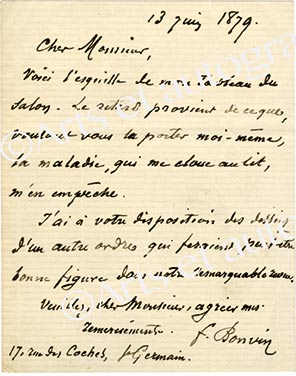 13 juin 1879.
Cher Monsieur,
Voici l'esquisse de mon tableau du
Salon. Le retard provient de ce que,
voulant vous la porter moi-même,
la maladie, qui me cloue au lit,
m'en empêche.
J'ai à votre disposition des dessins
d'un autre ordre qui feraient, peut-être
bonne figure dans votre remarquable revue.
Veuillez, cher Monsieur, agréer mes
remerciements.
f. Bonvin
17, rue des Coches, St Germain.